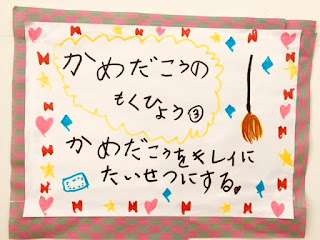 かめだこうの
もくひょう③
かめだこうをキレイに
たいせつにする。